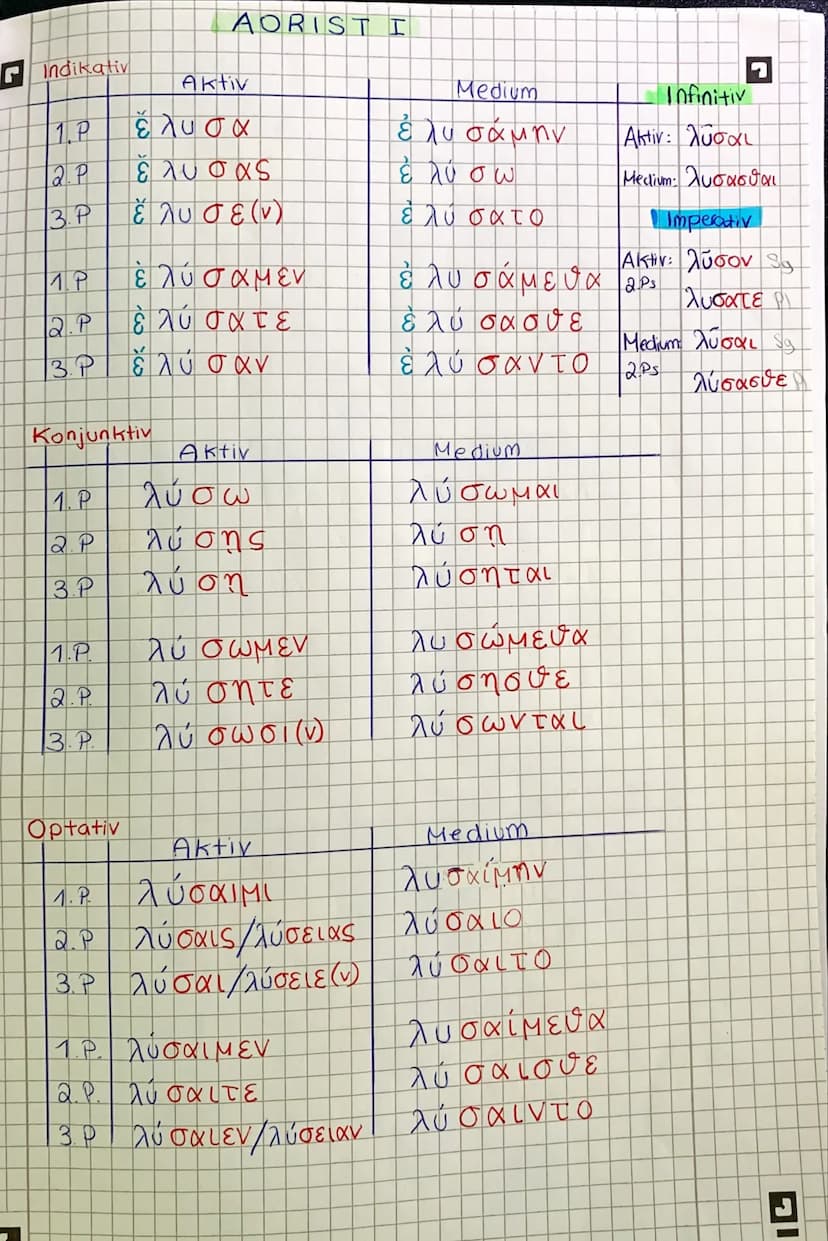 AORIST I
Indikativ
Aktiv Medium
1.P ἔ λυ σα ἐ λυ σάμην
2.P ἔ λυ σας ἐ λύ σω
3.P ἔ λυ σε(ν) ἐ λύ σατο
1.P ἐ λύ σαμεν ἐ λυ σάμεθα
2.P ἐ λύ σατε ἐ λύ σασθε
3.P ἔ λύ σαν ἐ λύ σαντο
Infinitiv
Aktiv: λῦσαι
Medium: λυσασθαι
Imperativ
Aktiv: λῦσον Sg
2.Ps λυσατε Pl
Medium: λῦσαι Sg
2.Ps λύσασθε Pl
Konjunktiv
Aktiv Medium
1.P λύσω λύσωμαι
2.P λύ σῃς λύ σῃ
3.P λύ ση λύσηται
1.P. λύ σωμεν λυ σώμεθα
2.P. λύ σητε λύ σησθε
3.P. λύ σωσι(ν) λύ σωνται
Optativ
Aktiv Medium
1.P. λύσαιμι λυσαίμην
2.P λύσαις/λύσειας λύσαιο
3.P λύσαι/λύσειε(ν) λύ σαιτο
1.P. λύσαιμεν λυσαίμεθα
2.P. λύ σαιτε λύ σαισθε
3.P λύσαιεν/λύσειαν λύ σαιντο